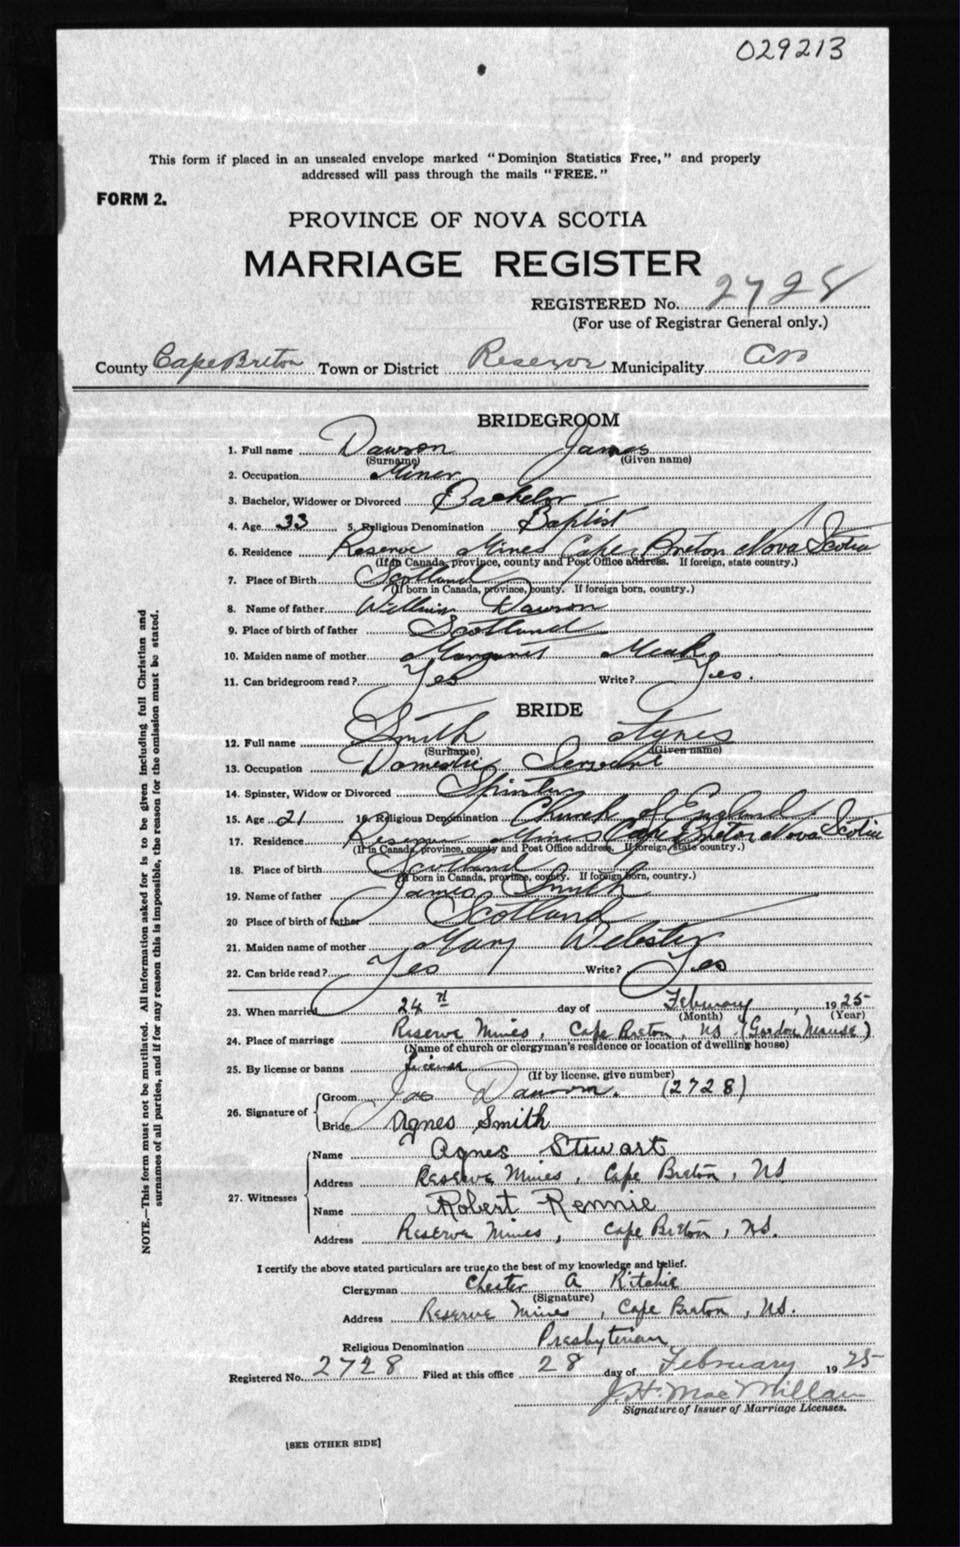 029213
This form if placed in an unsealed envelope marked "Dominion Statistics Free," and properly
addressed will pass through the mails "FREE."
FORM 2.
PROVINCE OF NOVA SCOTIA
MARRIAGE REGISTER
REGISTERED No. 2728
(For use of Registrar General only.)
County Cape Breton Town or District Reserve Municipality
BRIDEGROOM
1. Full name Dawson James
(Surname) (Given name)
2. Occupation Miner
3. Bachelor, Widower or Divorced Bachelor
4. Age 33 5. Religious Denomination Baptist
6. Residence Reserve Mines Cape Breton Nova Scotia
(If in Canada, province, county and Post Office address. If foreign, state country.)
7. Place of Birth Scotland
(If born in Canada, province, county. If foreign born, country.)
8. Name of father William Dawson
9. Place of birth of father Scotland
10. Maiden name of mother
11. Can bridegroom read? Yes Write? Yes.
BRIDE
12. Full name Smith Agnes
(Surname) (Given name)
13. Occupation Domestic Servant
14. Spinster, Widow or Divorced Spinster
15. Age 21 16. Religious Denomination Church of England
17. Residence Reserve Mines Cape Breton Nova Scotia
(If in Canada, province, county and Post Office address. If foreign, state country.)
18. Place of birth Scotland
(If born in Canada, province, county. If foreign born, country.)
19. Name of father James Smith
20 Place of birth of father Scotland
21. Maiden name of mother Mary Webster
22. Can bride read? Yes Write? Yes
23. When married 24th day of February, 1925
(Month) (Year)
24. Place of marriage Reserve Mines, Cape Breton, NS (Gordon Manse)
(Name of church or clergyman's residence or location of dwelling house)
25. By license or banns License
(If by license, give number) (2728)
26. Signature of Groom Jas Dawson.
Bride Agnes Smith
27. Witnesses Name Agnes Stewart
Address Reserve Mines, Cape Breton, NS
Name Robert Rennie
Address Reserve Mines, Cape Breton, NS.
I certify the above stated particulars are true to the best of my knowledge and belief.
Clergyman Chester A Ritchie
(Signature)
Address Reserve Mines, Cape Breton, NS.
Religious Denomination Presbyterian
Registered No. 2728 Filed at this office 28 day of February 1925
J. H. MacMillan
Signature of Issuer of Marriage Licenses.
[SEE OTHER SIDE]
NOTE.—This form must not be mutilated. All information asked for is to be given including full Christian and
surnames of all parties, and if for any reason this is impossible, the reason for the omission must be stated.